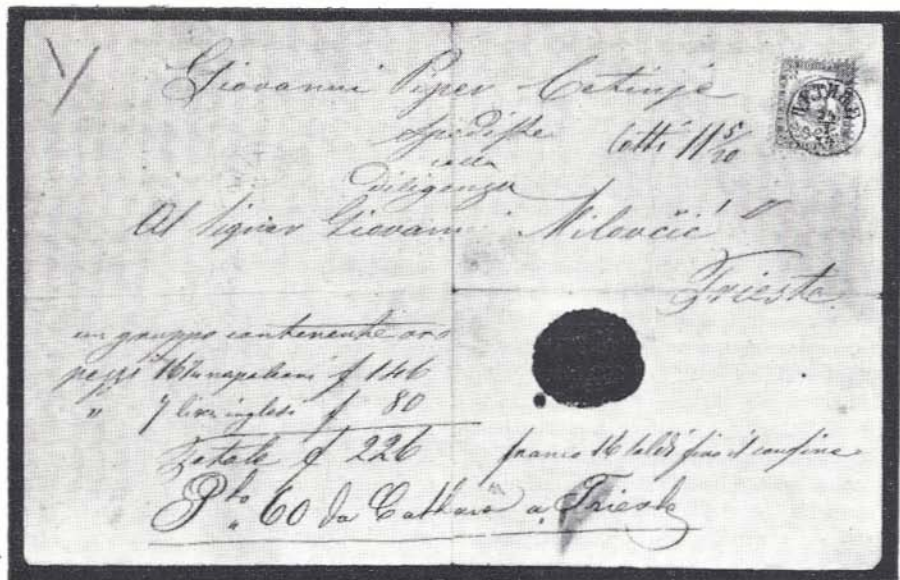 Giovanni Piper Cetinje
spedisce
colla
diligenza
lotti 11 5/20
Al Signor Giovanni Milovčić
Trieste
un gruppo contenente oro
pezzi 16 napoleoni f 146
" 7 lire inglesi f 80
Totale f 226
franco 16 soldi fino il confine
Pto " 60 da Cattaro a Trieste